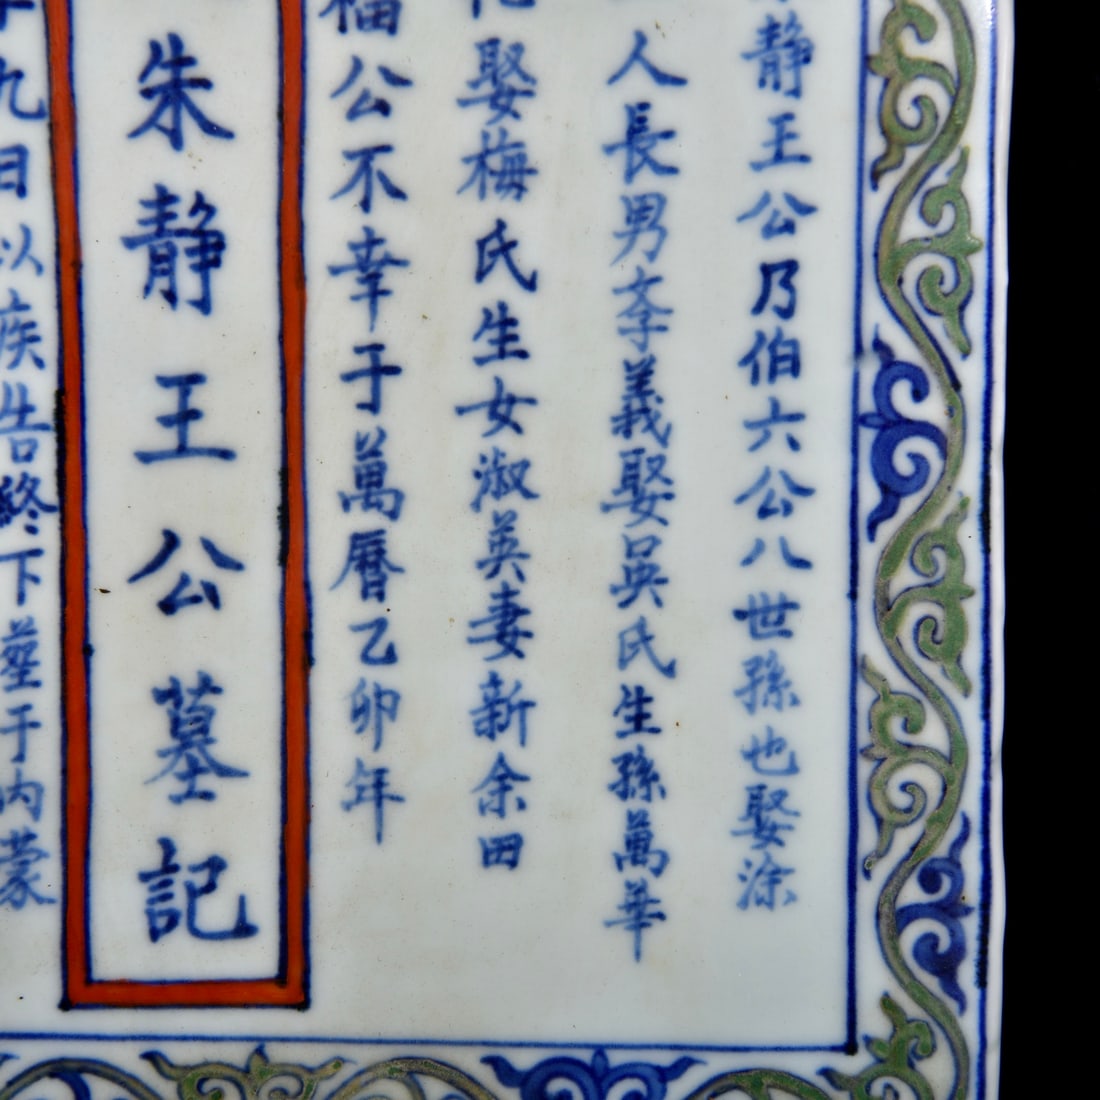 静王公乃伯六公八世孫也娶涂
人長男孝義娶吳氏生孫萬華
娶梅氏生女淑英妻新余田
福公不幸于萬曆乙卯年
朱静王公墓記
九日以疾告終下塟于內蒙